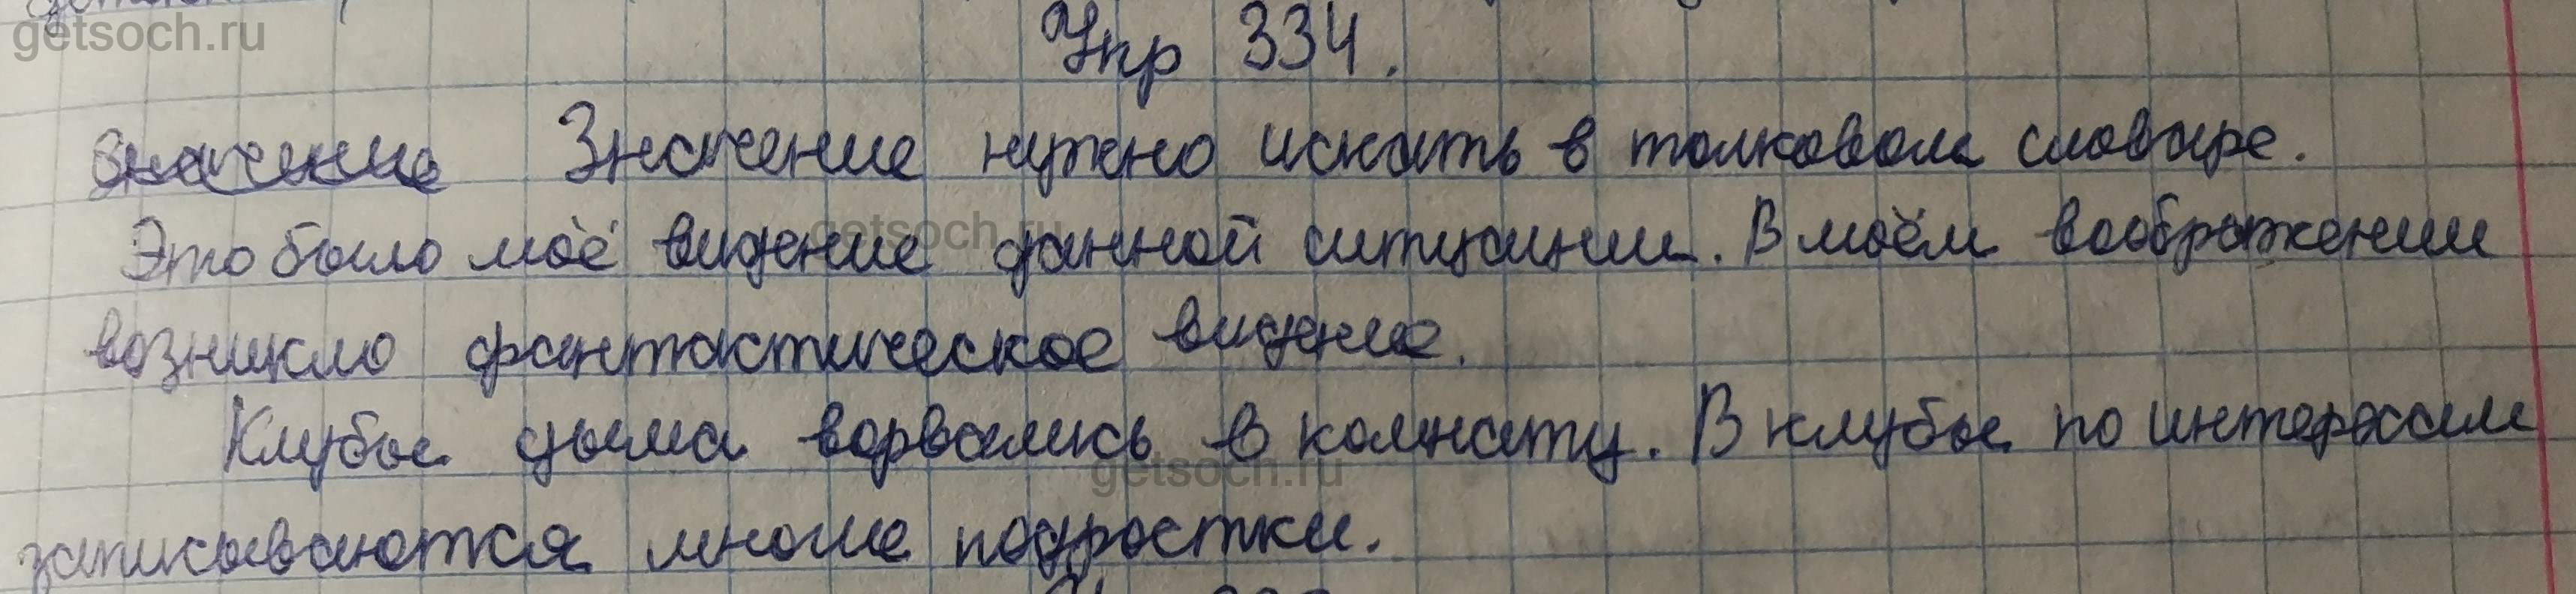 getsoch.ru
Упр 334.
Значение Значение нужно искать в толковом словаре.
Это было моё видение данной ситуации. В моём воображении
getsoch.ru
возникло фантастическое видение.
Клубы дыма ворвались в комнату. В клубы по интересам
getsoch.ru
записываются многие подростки.